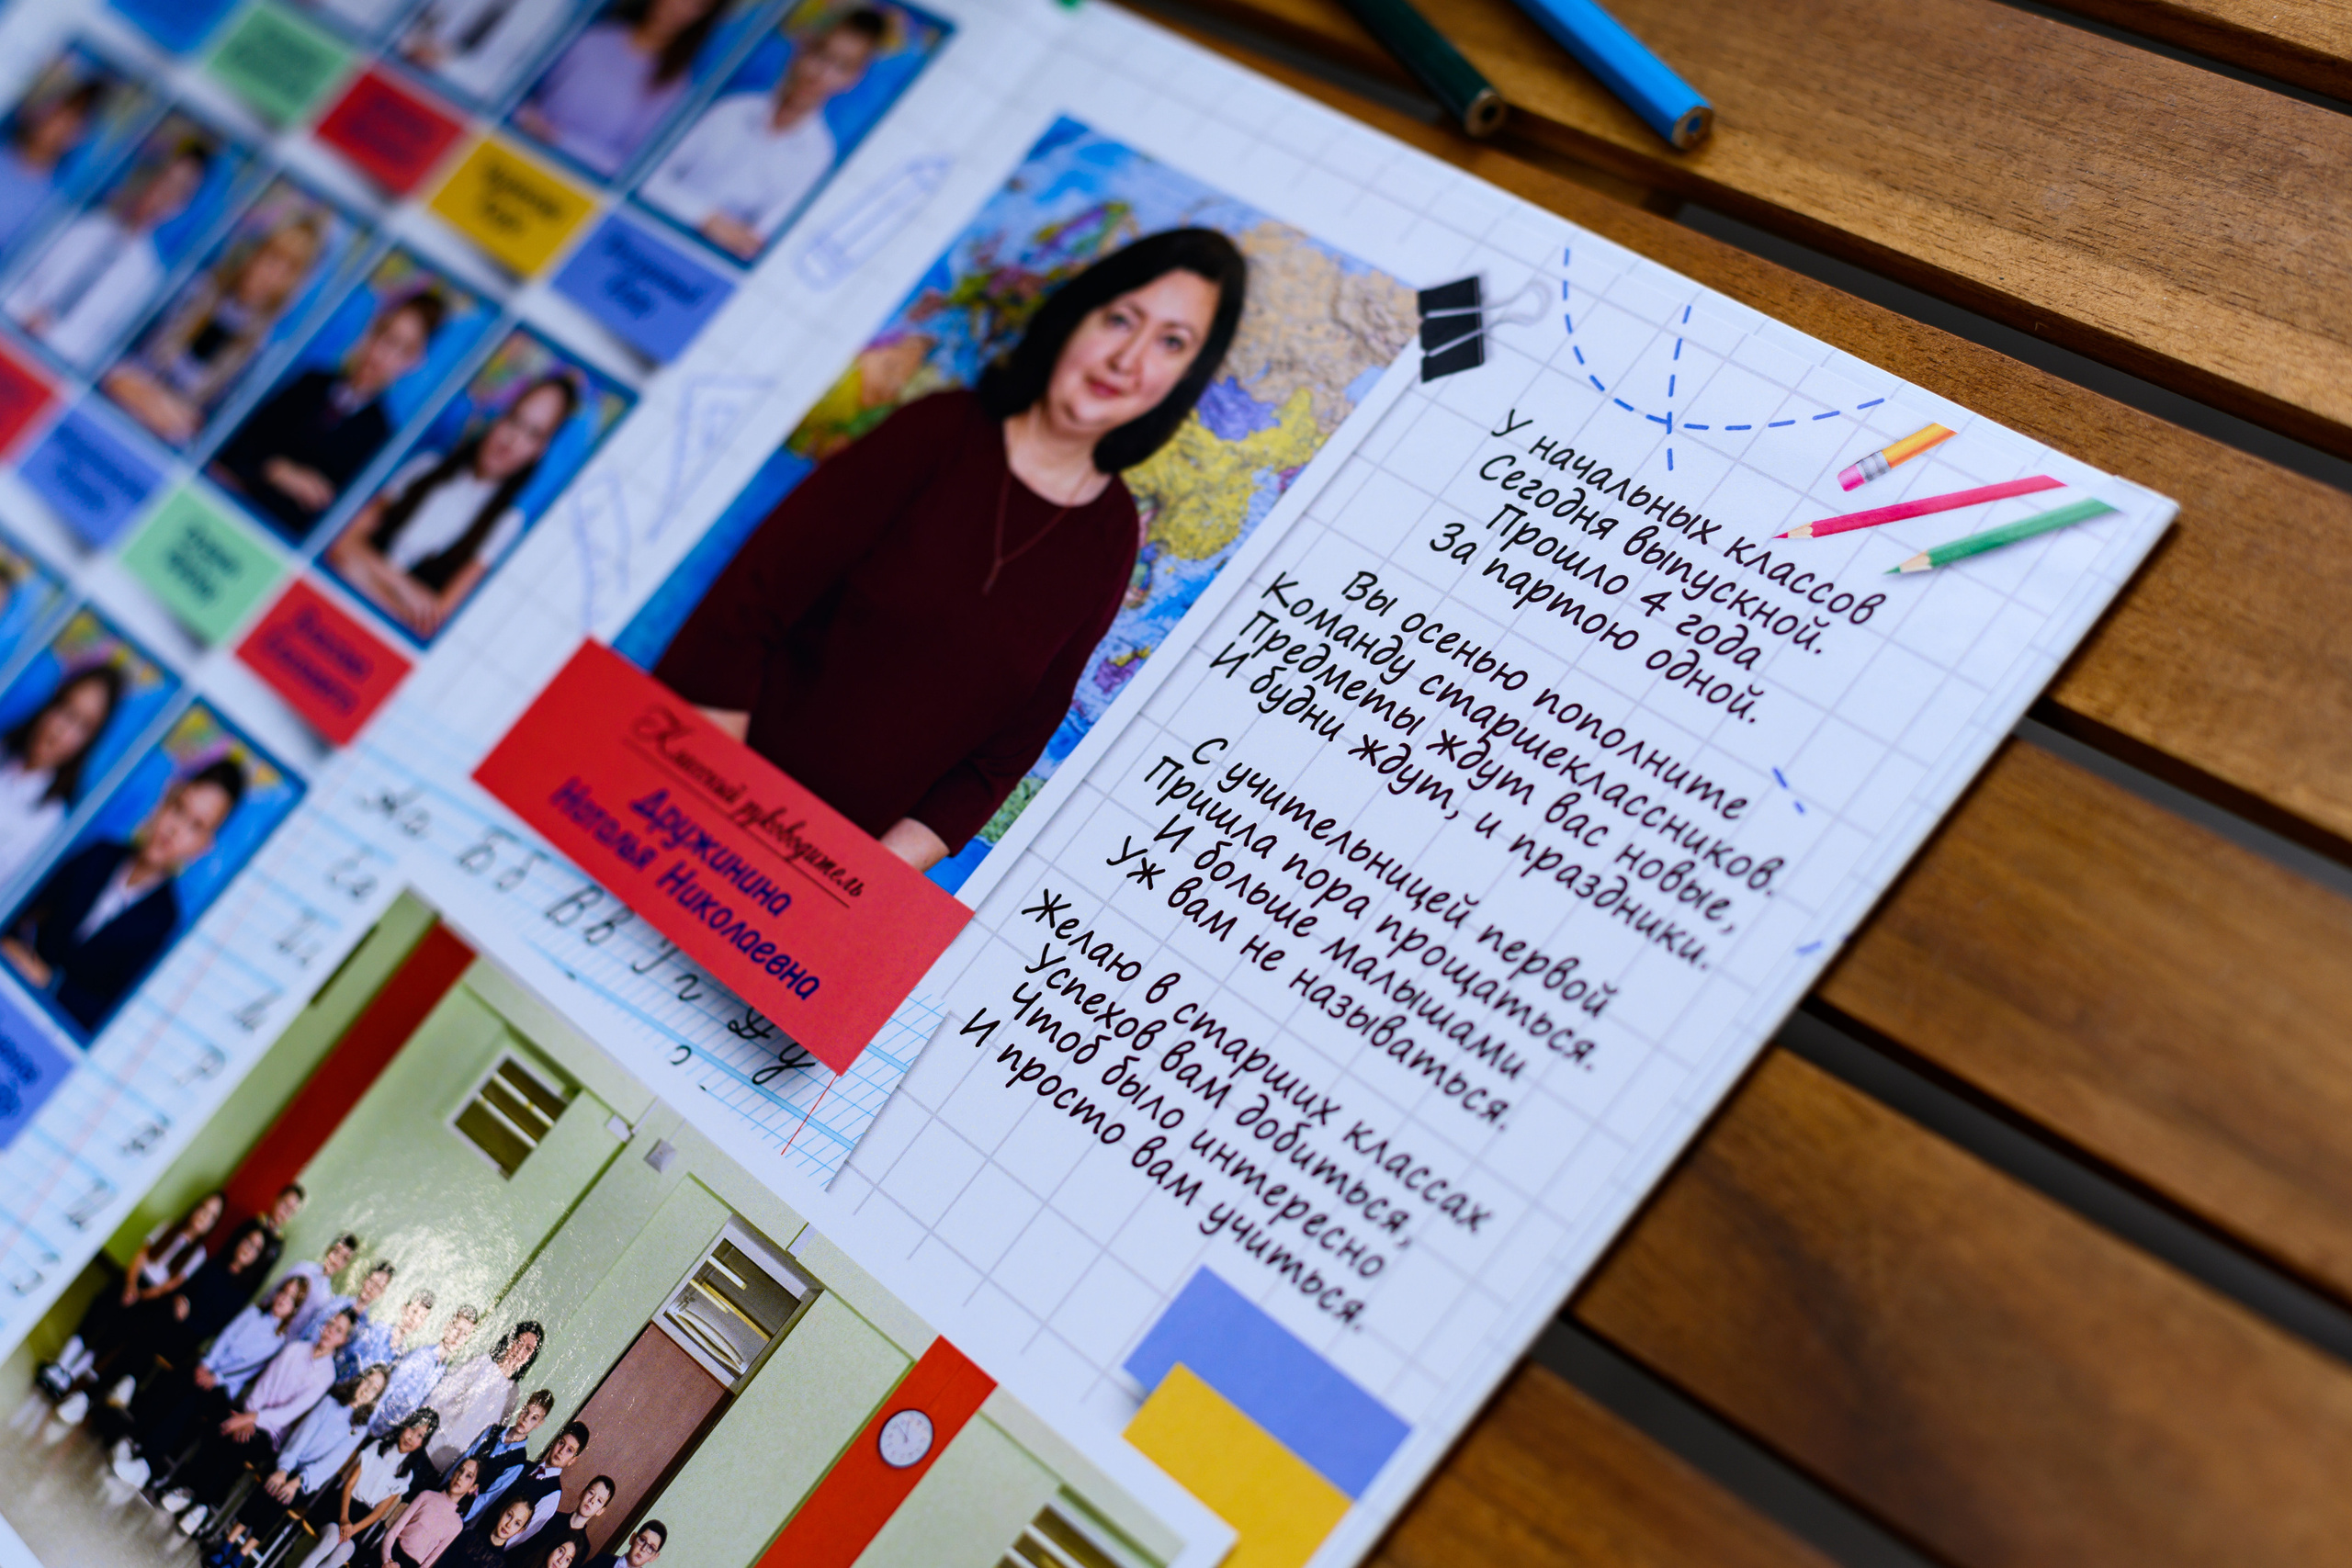 Классный руководитель
Дружинина
Наталья Николаевна
У начальных классов
Сегодня выпускной.
Прошло 4 года
За партою одной.
Вы осенью пополните
Команду старшеклассников.
Предметы ждут вас новые,
И будни ждут, и праздники.
С учительницей первой
Пришла пора прощаться.
И больше малышами
Уж вам не называться.
Желаю в старших классах
Успехов вам добиться,
Чтоб было интересно
И просто вам учиться.
Аа Бб Вв Гг